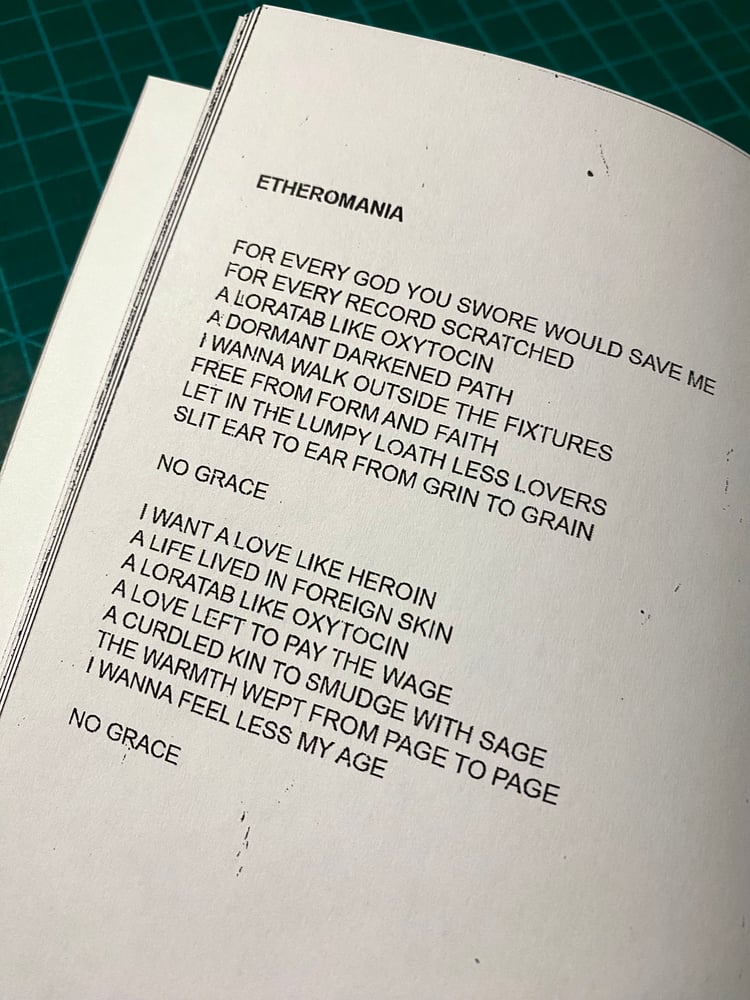 ETHEROMANIA
FOR EVERY GOD YOU SWORE WOULD SAVE ME
FOR EVERY RECORD SCRATCHED
A LORATAB LIKE OXYTOCIN
A DORMANT DARKENED PATH
I WANNA WALK OUTSIDE THE FIXTURES
FREE FROM FORM AND FAITH
LET IN THE LUMPY LOATH LESS LOVERS
SLIT EAR TO EAR FROM GRIN TO GRAIN
NO GRACE
I WANT A LOVE LIKE HEROIN
A LIFE LIVED IN FOREIGN SKIN
A LORATAB LIKE OXYTOCIN
A LOVE LEFT TO PAY THE WAGE
A CURDLED KIN TO SMUDGE WITH SAGE
THE WARMTH WEPT FROM PAGE TO PAGE
I WANNA FEEL LESS MY AGE
NO GRACE